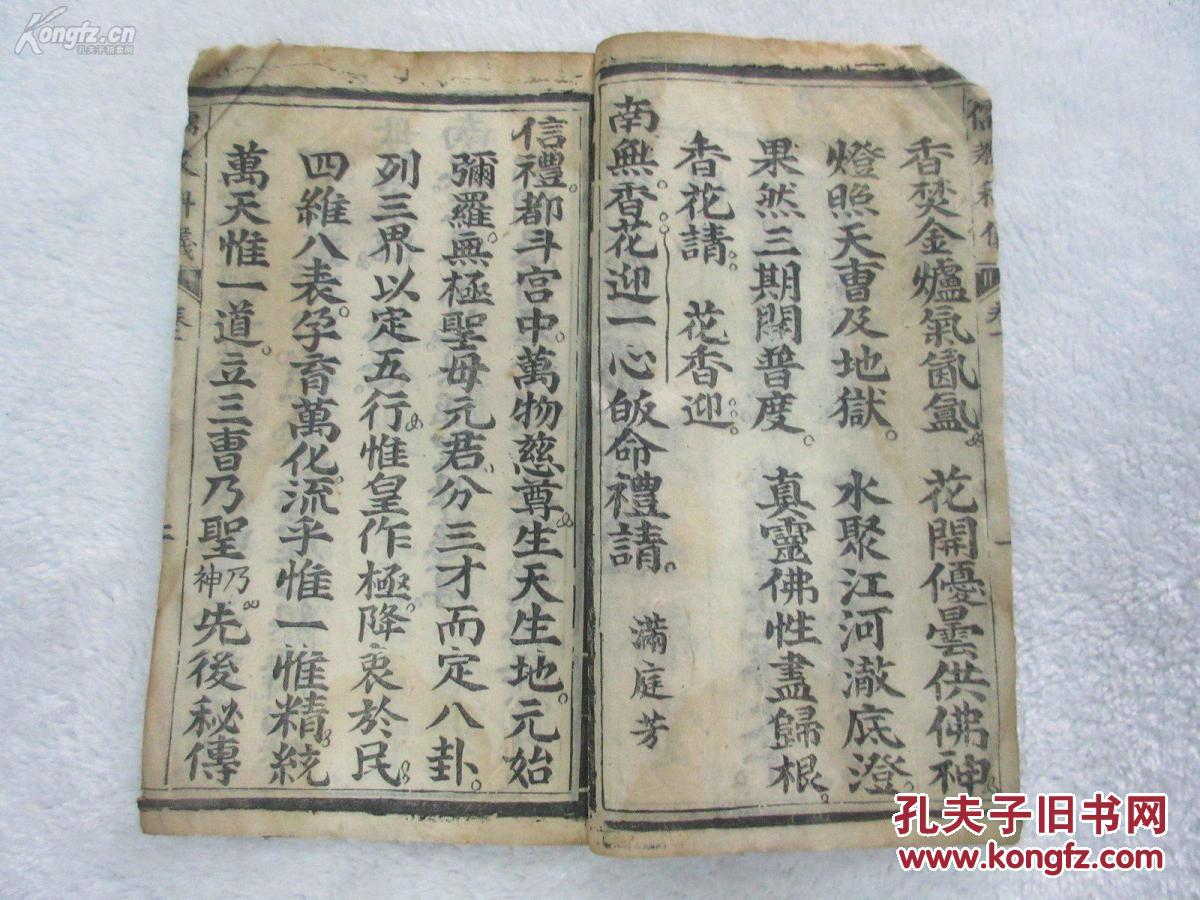 香焚金爐氣氤氳。 花開優曇供佛神。
燈照天曹及地獄。 水聚江河澈底澄。
果然三期開普度。 真靈佛性盡歸根。
香花請。 花香迎。
南無香花迎一心皈命禮請。 滿庭芳
信禮。都斗宮中。萬物慈尊。生天生地。元始
彌羅。無極聖母元君。分三才而定八卦。
列三界以定五行。惟皇作極。降衷於民。
四維八表。孕育萬化。流乎惟一惟精。統
萬天惟一道。立三曹乃聖乃神。先後秘傳
儒教科儀 卷一
一
二
Kongfz.cn
孔夫子拍卖网
孔夫子旧书网
www.kongfz.com